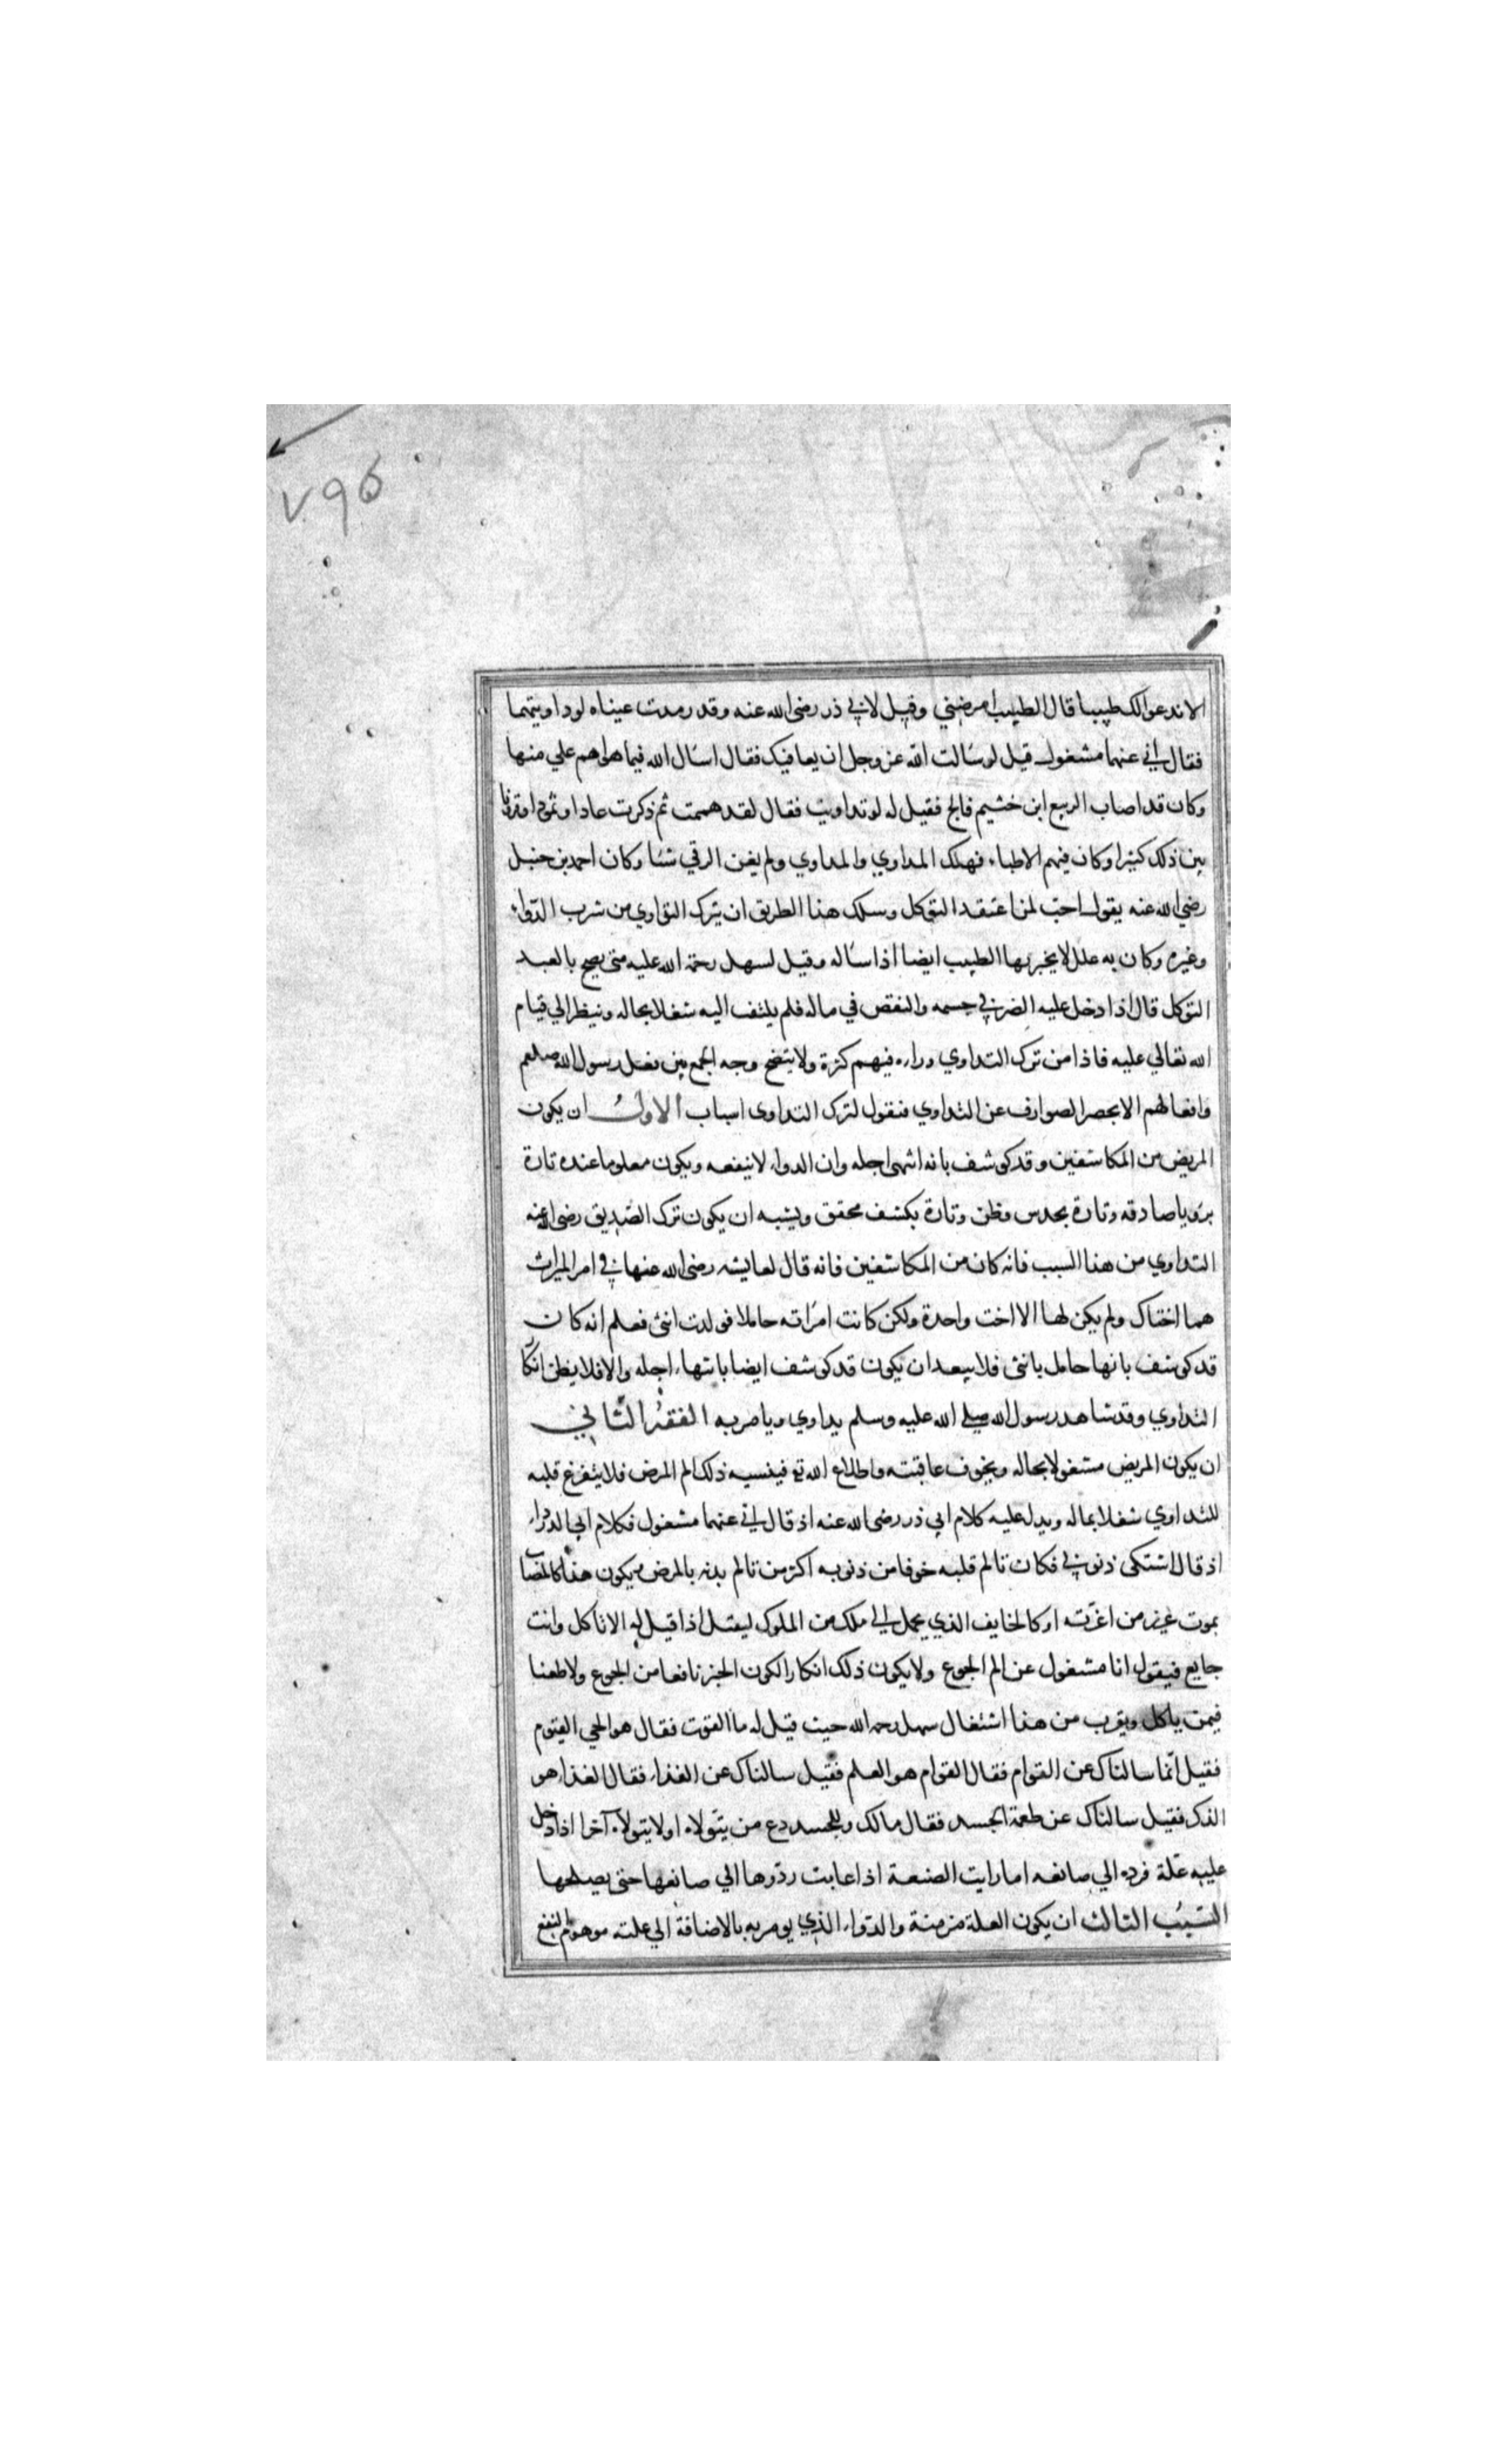 ٧٩٥
الا ندعوا لك طبيبا قال الطبيب امرضني وقيل لابي ذر رضي الله عنه وقد رمدت عيناه لو داويتهما
فقال اني عنهما مشغول قيل لو سالت الله عز وجل ان يعافيك فقال اسال الله فيما هو اهم علي منها
وكان قد اصاب الربيع ابن خشيم فالج فقيل له لو تداويت فقال لقد هممت ثم ذكرت عادا وثمود او قرونا
بين ذلك كثيرا وكان فيهم الاطباء فهلك المداوي والمداوي ولم يغن الرقي شئا وكان احمد بن حنبل
رضي الله عنه يقول احب لمن اعتقد التوكل وسلك هذا الطريق ان يترك التداوي من شرب الدواء
وغيره وكان به علل لا يخبر بها الطبيب ايضا اذا ساله وقيل لسهل رحمة الله عليه متى يصح بالعبد
التوكل قال اذا دخل عليه الضر في جسمه والنقص في ماله فلم يلتفت اليه شغلا بحاله وينظر الي قيام
الله تعالي عليه فاذا من ترك التداوي وراءه فيهم كثرة ولا يتضح وجه الجمع بين فعل رسول الله صلعم
وافعالهم الا بحصر الصوارف عن التداوي فنقول لترك التداوى اسباب الاول ان يكون
المريض من المكاشفين وقد كوشف بانه انتهى اجله وان الدواء لا ينفعه ويكون معلوما عنده تارة
برويا صادقه وتارة بحدس وظن وتارة بكشف محقق ويشبه ان يكون ترك الصديق رضى الله عنه
التداوي من هذا السبب فانه كان من المكاشفين فانه قال لعايشه رضى الله عنها في امر الميراث
هما اختاك ولم يكن لها الا اخت واحدة ولكن كانت امراته حاملا فولدت انثى فعلم انه كان
قد كوشف بانها حامل بانثى فلا يبعد ان يكون قد كوشف ايضا بانتهاء اجله والا فلا يظن انكا
التداوي وقد شاهد رسول الله صلى الله عليه وسلم يداوي ويامر به الفقه الثاني
ان يكون المريض مشغولا بحاله وبخوف عاقبته واطلاع الله تع فينسيه ذلك الم المرض فلا يتفرغ قلبه
للتداوي شغلا بماله ويدل عليه كلام ابي ذر رضى الله عنه اذ قال اني عنهما مشغول فكلام ابي الدرداء
اذ قال اشتكى ذنوبي فكان تالم قلبه خوفا من ذنوبه اكثر من تالم بدنه بالمرض ويكون هذا كالمصاب
بموت عزيز من اعزته او كالخايف الذي يحمل الى ملك من الملوك ليقتل اذا قيل له الا تاكل وانت
جايع فيقول انا مشغول عن الم الجوع ولا يكون ذلك انكارا لكون الخبز نافعا من الجوع ولا طعنا
فيمن ياكل ويقرب من هذا اشتغال سهل رحمه الله حيث قيل له ما القوت فقال هو الحي القيوم
فقيل انما سالناك عن القوام فقال القوام هو العلم فقيل سالناك عن الغذاء فقال الغذاء هو
الذكر فقيل سالناك عن طعمة الجسد فقال مالك وللجسد دع من يتولاه اولا يتولاه آخرا اذا دخل
عليه علة فرده الي صانعه اما رايت الصنعة اذا عابت ردوها الي صانعها حتى يصلحها
السبب الثالث ان يكون العلة مزمنة والدواء الذي يومر به بالاضافة الي علته موهوم النفع